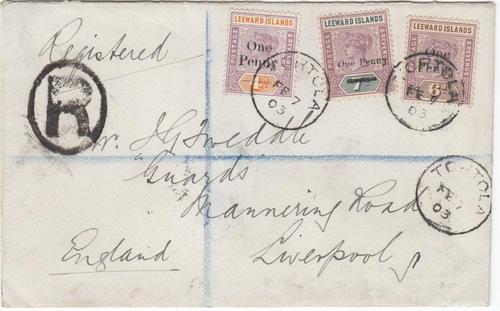 Registered
LEEWARD ISLANDS
One
Penny
LEEWARD ISLANDS
One Penny
LEEWARD ISLANDS
One
Penny
TORTOLA
FE 7
03
TORTOLA
FE 7
03
R
Mr. J G Tweddle
Guards
TORTOLA
FE 7
03
Mannering Road
England
Liverpool